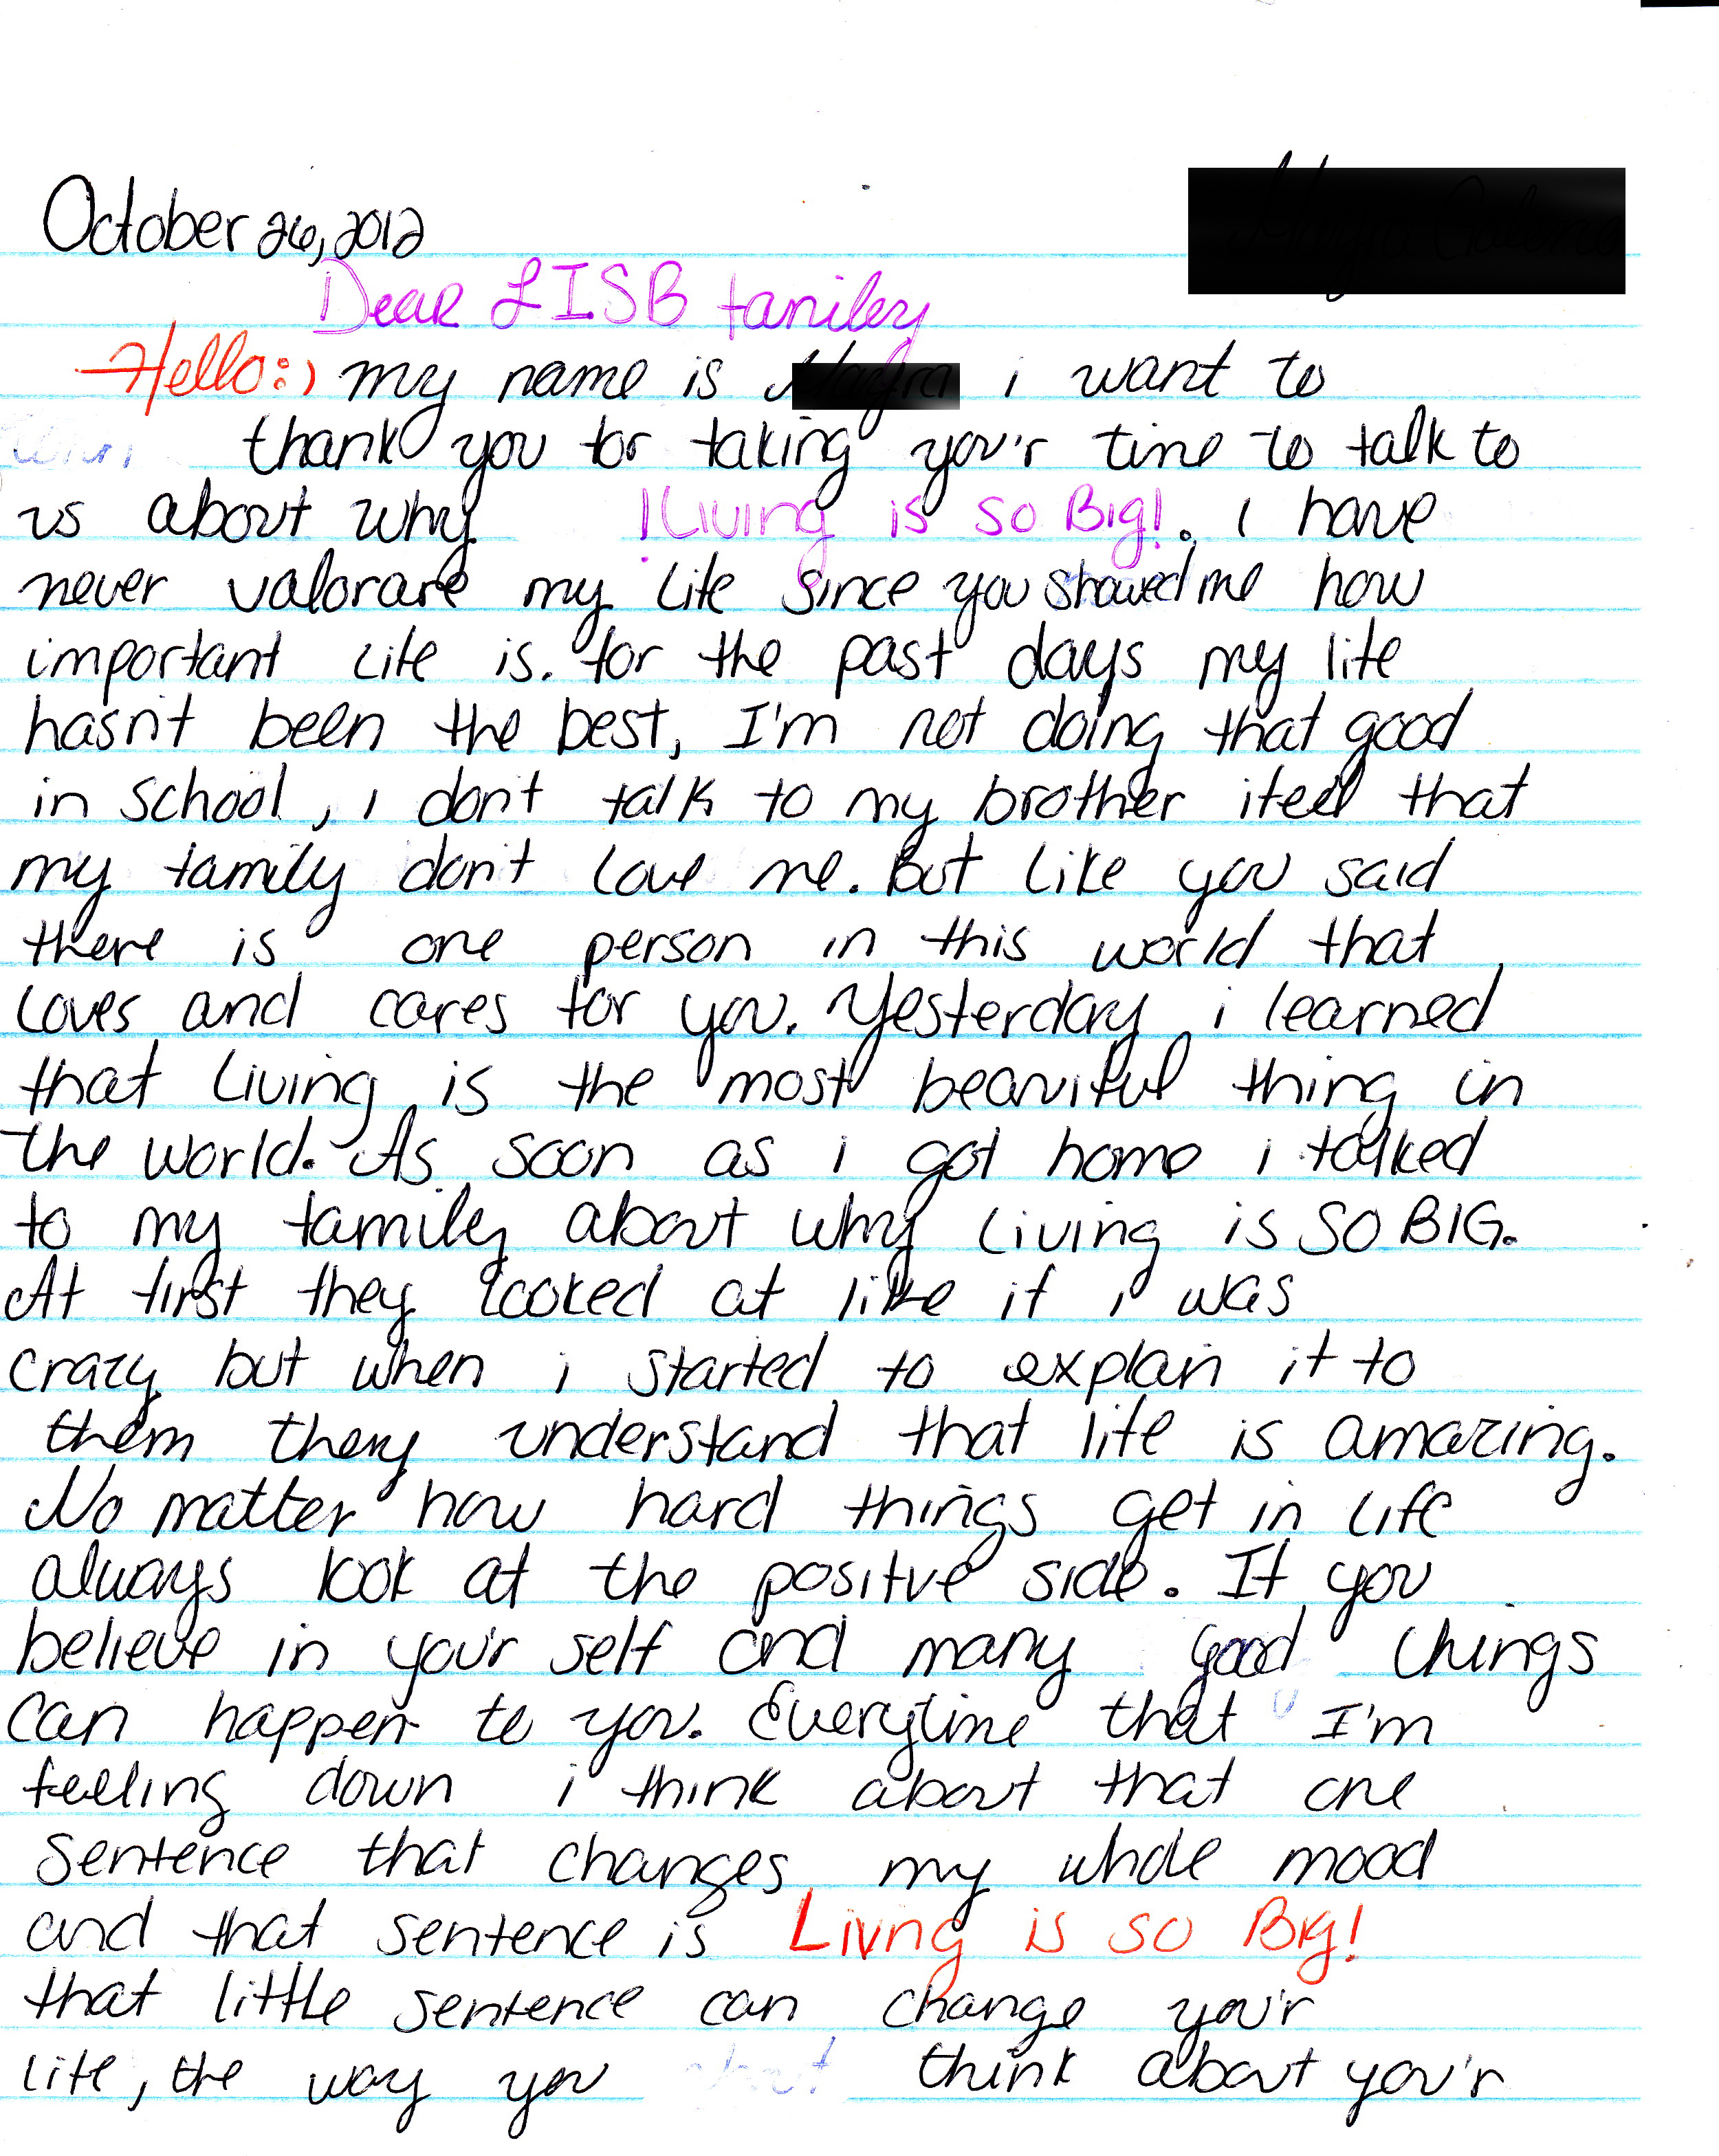 October 26, 2012
Dear LISB family
Hello:) my name is i want to
thank you for taking you'r time to talk to
us about why ¡Living is so Big!. I have
never valorare my life since you showed me how
important life is. for the past days my life
hasn't been the best, I'm not doing that good
in school, i don't talk to my brother i feel that
my family don't love me. But like you said
there is one person in this world that
loves and cares for you. Yesterday i learned
that living is the most beauitful thing in
the world. As soon as i got home i talked
to my family about why living is SO BIG.
At first they looked at like if i was
crazy but when i started to explain it to
them they understand that life is amazing.
No matter how hard things get in life
always look at the positve side. If you
believe in you'r self and many good things
can happen to you. Everytime that I'm
feeling down i think about that one
sentence that changes my whole mood
and that sentence is Livng is so Big!
that little sentence can change you'r
life, the way you think about you'r